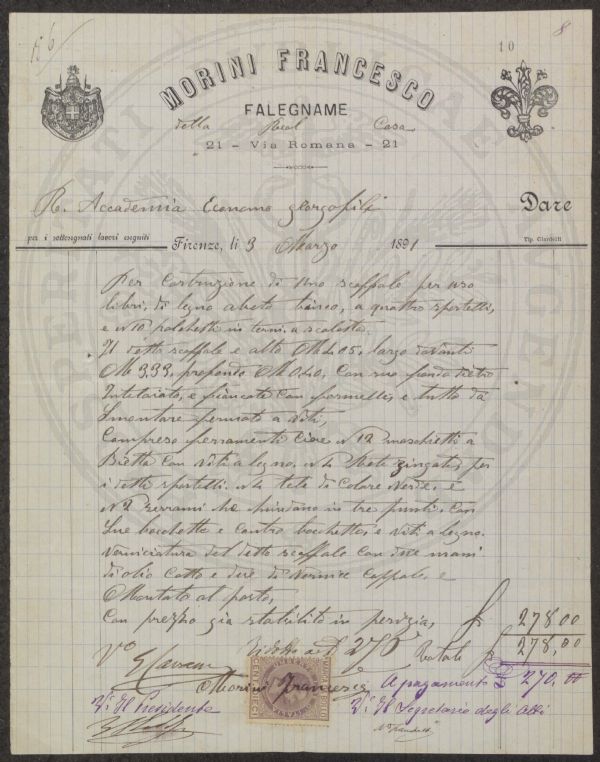 8
10
MORINI FRANCESCO
FALEGNAME
della Real Casa
21 - Via Romana - 21
R. Accademia Economo georgofili Dare
per i sottosegnati lavori eseguiti Firenze, li 3 Marzo 1891 Tip. Ciardelli
Per Costruzione di Uno scaffale per uso
libri, di legno abeto bianco, a quattro sportelli,
e N 10 palchetti in terni. a scaletta.
Il detto scaffale e alto M 4.05. largo davanti
M 3.33. profondo M 0.40. Con suo fondo dietro
Intelaiato, e fiancate Con formelle, e tutto da
Smontare fermato a Viti,
Compreso ferramenti Cioe N 12 maschietti a
Con Viti a legno. N 4 Rete zingate, per
i detti sportelli. N 4 Tele di Colore Verde. e
N 2 serrami che chiudano in tre punti. Con
Sue bocchette e contro bocchette, e Viti a legno.
Verniciatura del detto scaffale Con due mani
di olio Cotto e due di Vernice Coppale, e
Montato al posto,
Con prezzo gia stabilito in perizia, £ 278.00
Ridotto a £ 270 Totale £ 278,00
Vo
Morini Francesco A pagamento £ 270.00
Vo Il Presidente Vo Il Segretario degli Atti